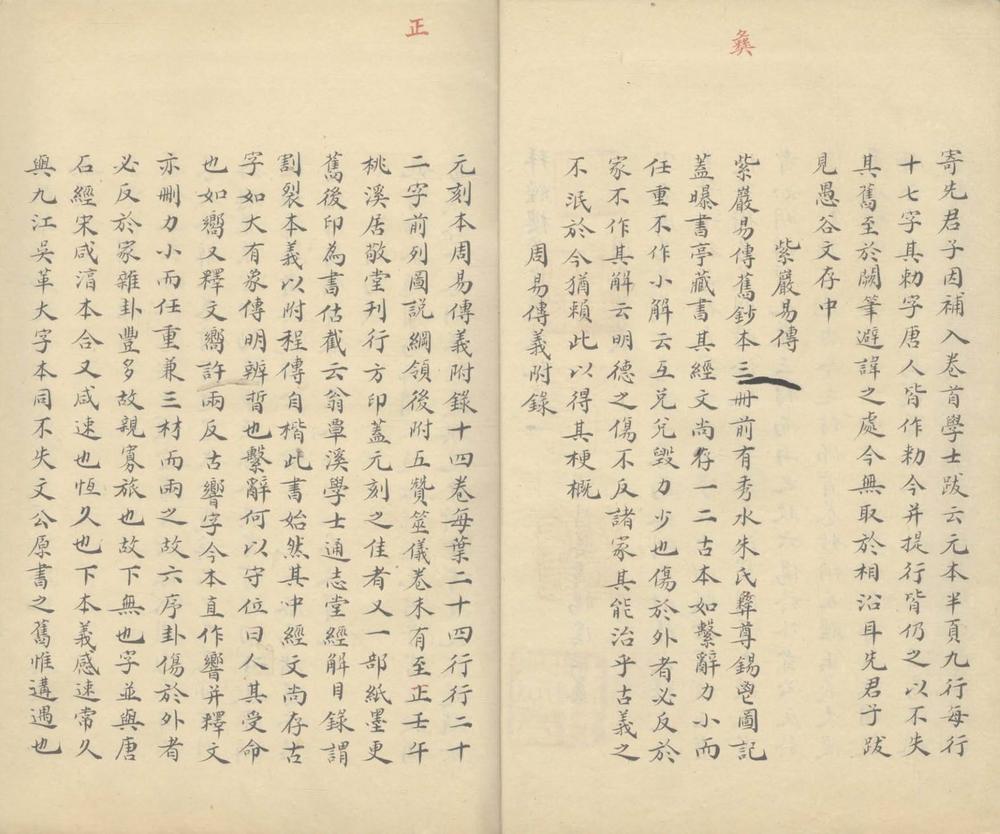 彝
寄先君子因補入卷首學士跋云元本半頁九行每行
十七字其勅字唐人皆作勑今并提行皆仍之以不失
其舊至於闕筆避諱之處今無取於相沿耳先君子跋
見愚谷文存中
紫巖易傳
紫巖易傳舊鈔本三冊前有秀水朱氏彝尊錫鬯圖記
蓋曝書亭藏書其經文尚存一二古本如繫辭力小而
任重不作小解云互兌兌毀力少也傷於外者必反於
家不作其解云明德之傷不反諸家其能治乎古義之
不泯於今猶賴此以得其梗概
周易傳義附錄
正
元刻本周易傳義附錄十四卷每葉二十四行行二十
二字前列圖説綱領後附五贊筮儀卷末有至正壬午
桃溪居敬堂刊行方印蓋元刻之佳者又一部紙墨更
舊後印為書估截去翁覃溪學士通志堂經解目錄謂
割裂本義以附程傳自楷此書始然其冲經文尚存古
字如大有象傳明辨晢也繫辭何以守位曰人其受命
也如嚮又釋文嚮許兩反古響字今本直作響并釋文
亦刪力小而任重兼三材而兩之故六序卦傷於外者
必反於家雜卦豐多故親寡旅也故下無也字並與唐
石經宋咸淳本合又咸速也恆久也下本義感速常久
與九江吳革大字本同不失文公原書之舊惟遘遇也